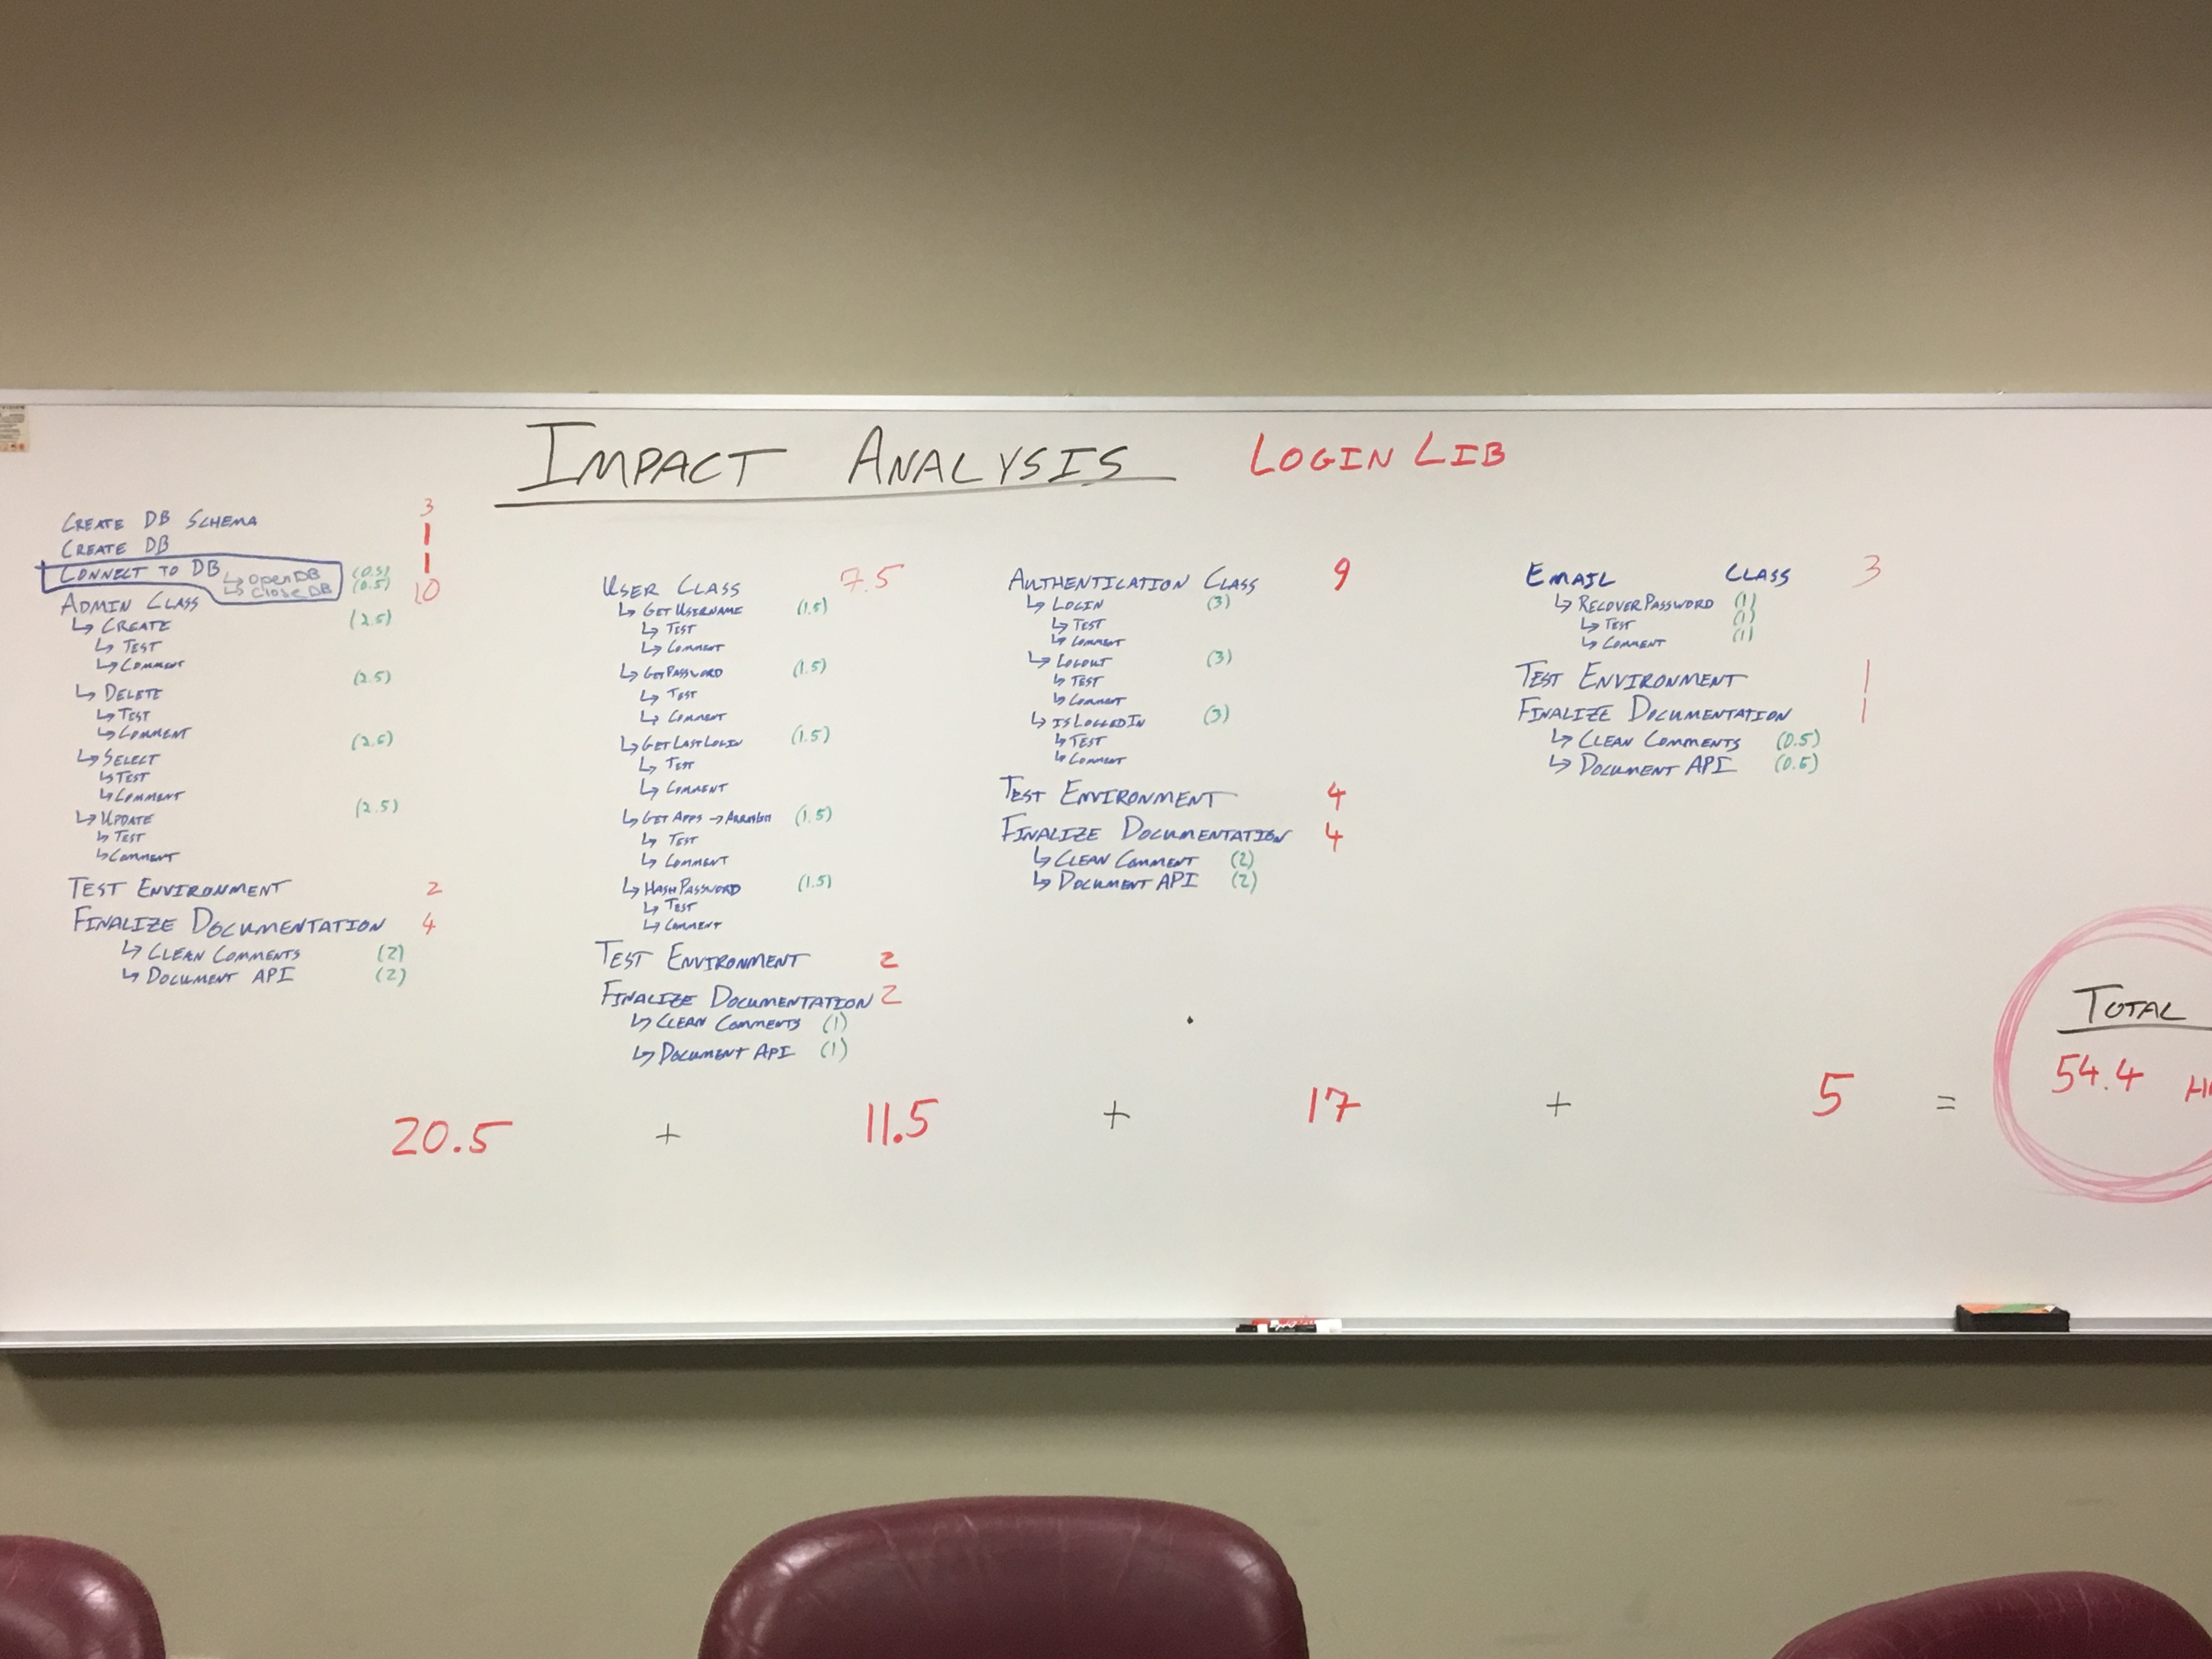 IMPACT ANALYSIS LOGIN LIB
CREATE DB SCHEMA 3
CREATE DB 1
CONNECT TO DB 1
↳ OPEN DB (0.5)
↳ CLOSE DB (0.5)
ADMIN CLASS 10
↳ CREATE (2.5)
↳ TEST
↳ COMMENT
↳ DELETE (2.5)
↳ TEST
↳ COMMENT
↳ SELECT (2.5)
↳ TEST
↳ COMMENT
↳ UPDATE (2.5)
↳ TEST
↳ COMMENT
TEST ENVIRONMENT 2
FINALIZE DOCUMENTATION 4
↳ CLEAN COMMENTS (2)
↳ DOCUMENT API (2)
USER CLASS 7.5
↳ GET USERNAME (1.5)
↳ TEST
↳ COMMENT
↳ GET PASSWORD (1.5)
↳ TEST
↳ COMMENT
↳ GET LAST LOGIN (1.5)
↳ TEST
↳ COMMENT
↳ GET APPS → (1.5)
↳ TEST
↳ COMMENT
↳ HASH PASSWORD (1.5)
↳ TEST
↳ COMMENT
TEST ENVIRONMENT 2
FINALIZE DOCUMENTATION 2
↳ CLEAN COMMENTS (1)
↳ DOCUMENT API (1)
AUTHENTICATION CLASS 9
↳ LOGIN (3)
↳ TEST
↳ COMMENT
↳ LOGOUT (3)
↳ TEST
↳ COMMENT
↳ IS LOGGED IN (3)
↳ TEST
↳ COMMENT
TEST ENVIRONMENT 4
FINALIZE DOCUMENTATION 4
↳ CLEAN COMMENT (2)
↳ DOCUMENT API (2)
EMAIL CLASS 3
↳ RECOVER PASSWORD (1)
↳ TEST (1)
↳ COMMENT (1)
TEST ENVIRONMENT 1
FINALIZE DOCUMENTATION 1
↳ CLEAN COMMENTS (0.5)
↳ DOCUMENT API (0.5)
TOTAL
20.5 + 11.5 + 17 + 5 = 54.4